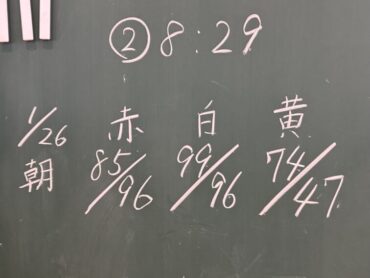 ② 8:29
1/26 赤 白 黄
朝 85/96 99/96 74/47